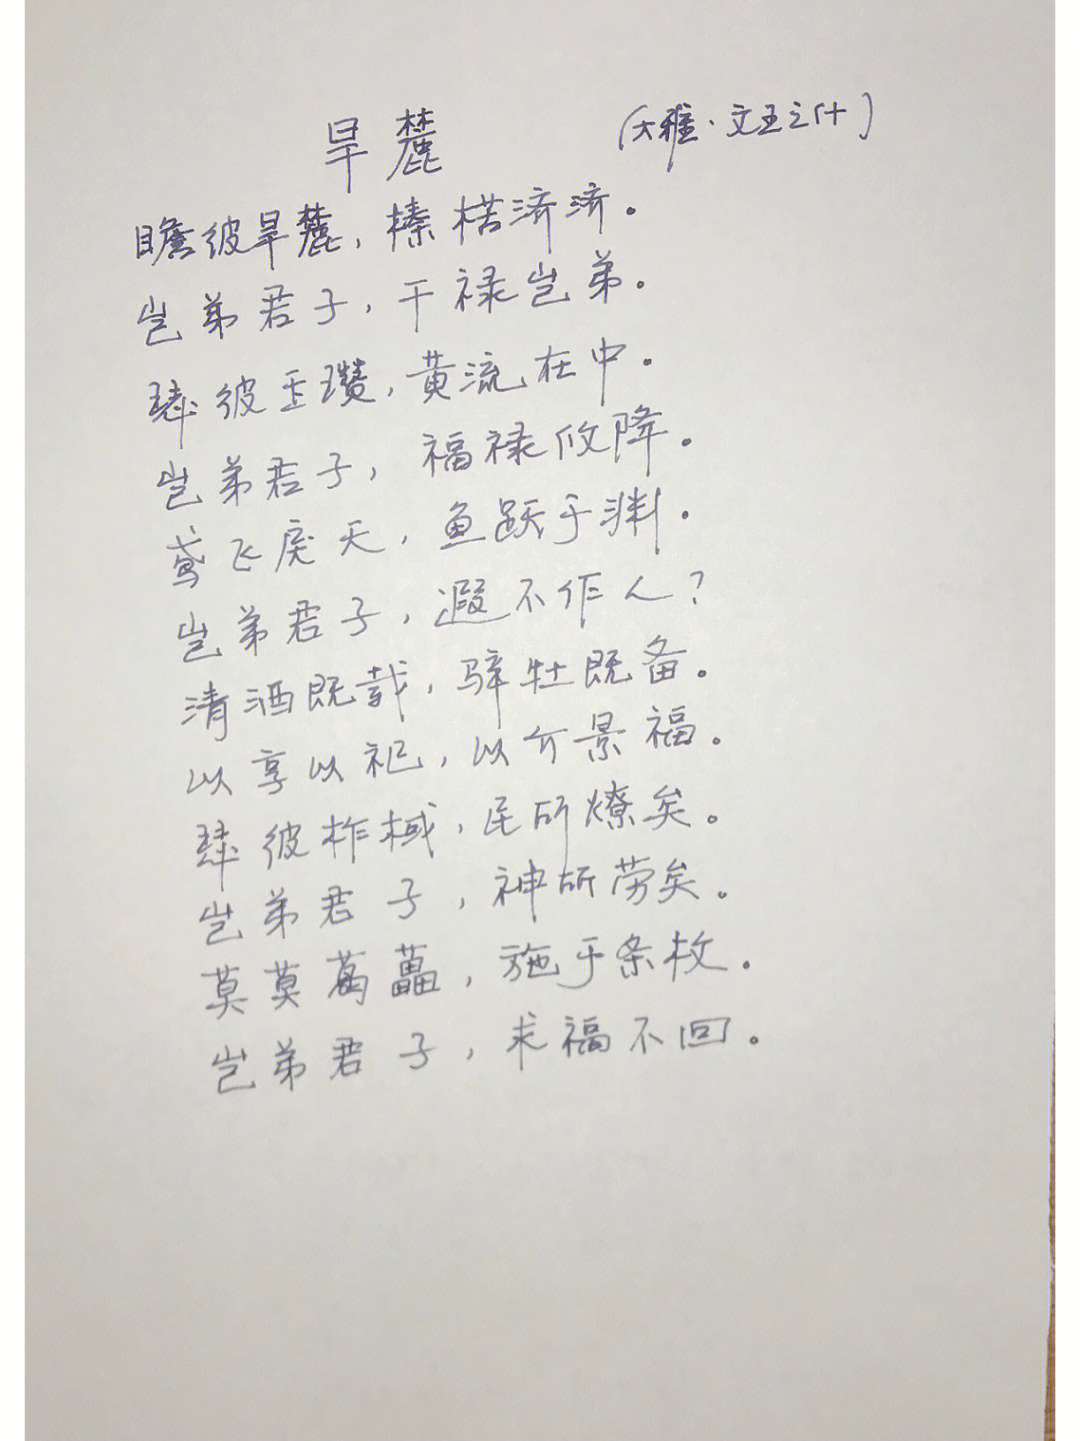 旱麓 (大雅·文王之什)
瞻彼旱麓，榛楛济济。
岂弟君子，干禄岂弟。
瑟彼玉瓒，黄流在中。
岂弟君子，福禄攸降。
鸢飞戾天，鱼跃于渊。
岂弟君子，遐不作人？
清酒既载，骍牡既备。
以享以祀，以介景福。
瑟彼柞棫，民所燎矣。
岂弟君子，神所劳矣。
莫莫葛藟，施于条枚。
岂弟君子，求福不回。